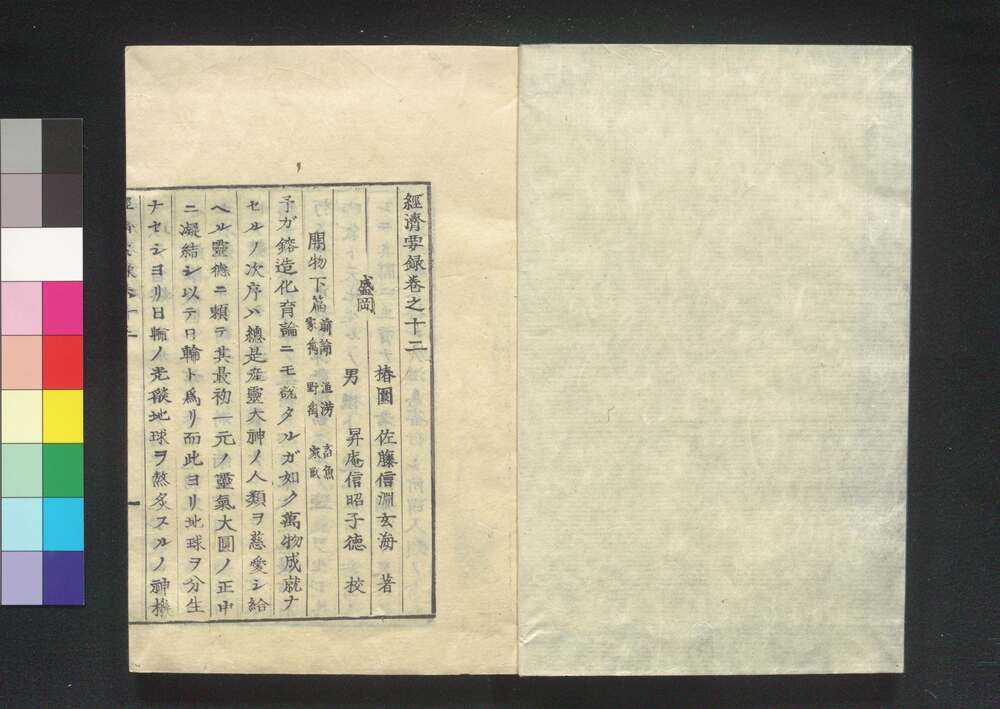 經濟要録巻之十二
椿園 佐藤信淵玄海 著
盛岡
男 昇庵信昭子德 校
開物下篇 前論 漁澇 畜魚 家禽 野禽 家畋
予ガ鎔造化育論ニモ說タルガ如ク萬物成就ナ
セルノ次序ハ總是産靈大神ノ人類ヲ慈愛シ給
ヘル靈德ニ頼テ其最初一元ノ靈氣大圓ノ正中
ニ凝結シ以テ日輪ト爲リ而此ヨリ地球ヲ分生
ナセシヨリ日輪ノ光燄地球ヲ熬炙スルノ神機
經濟要録巻十二 一